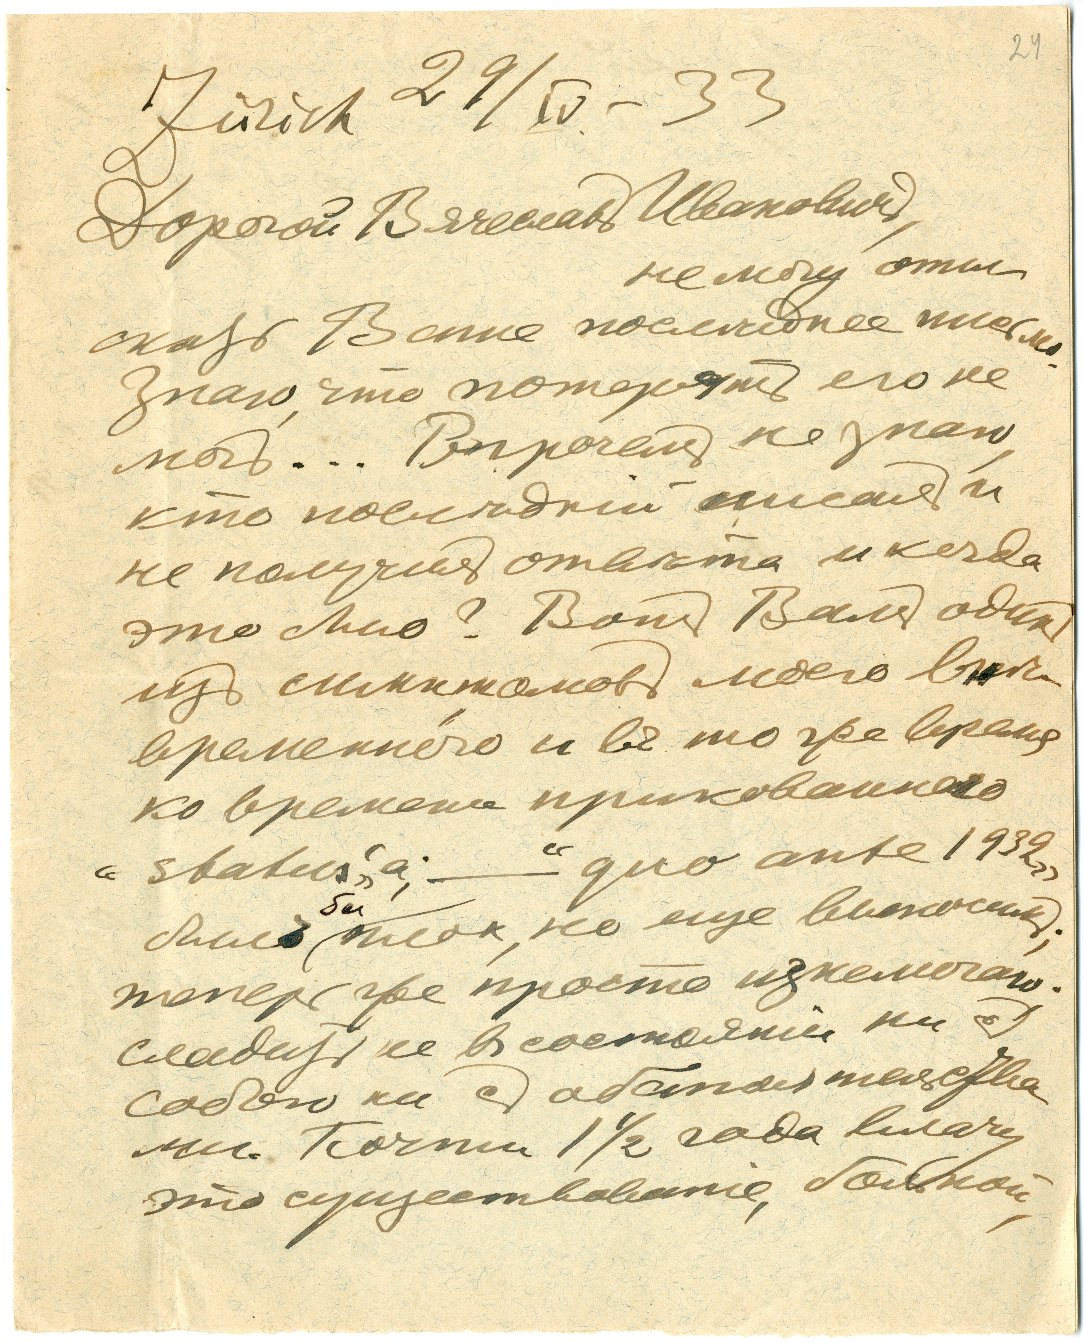 24
Zürich 29/IV – 33
Дорогой Вячеславъ Ивановичъ,
не могу оты
скать Ваше последнее письмо.
Знаю, что потерять его не
могъ... Впрочемъ не знаю,
кто последній писалъ и
не получилъ ответа и когда
это было? Вотъ Вамъ одинъ
изъ симптомовъ моего вне
временного и въ то же время
ко времени прикованнаго
„status“a; — “quo ante 1932„
былъ бы плохъ, но еще выносимъ;
теперь же просто изнемогаю.
сладить не въ состояніи ни съ
собою ни съ обстоятельства
ми. Почти 1½ года влачу
это существованіе, больной,